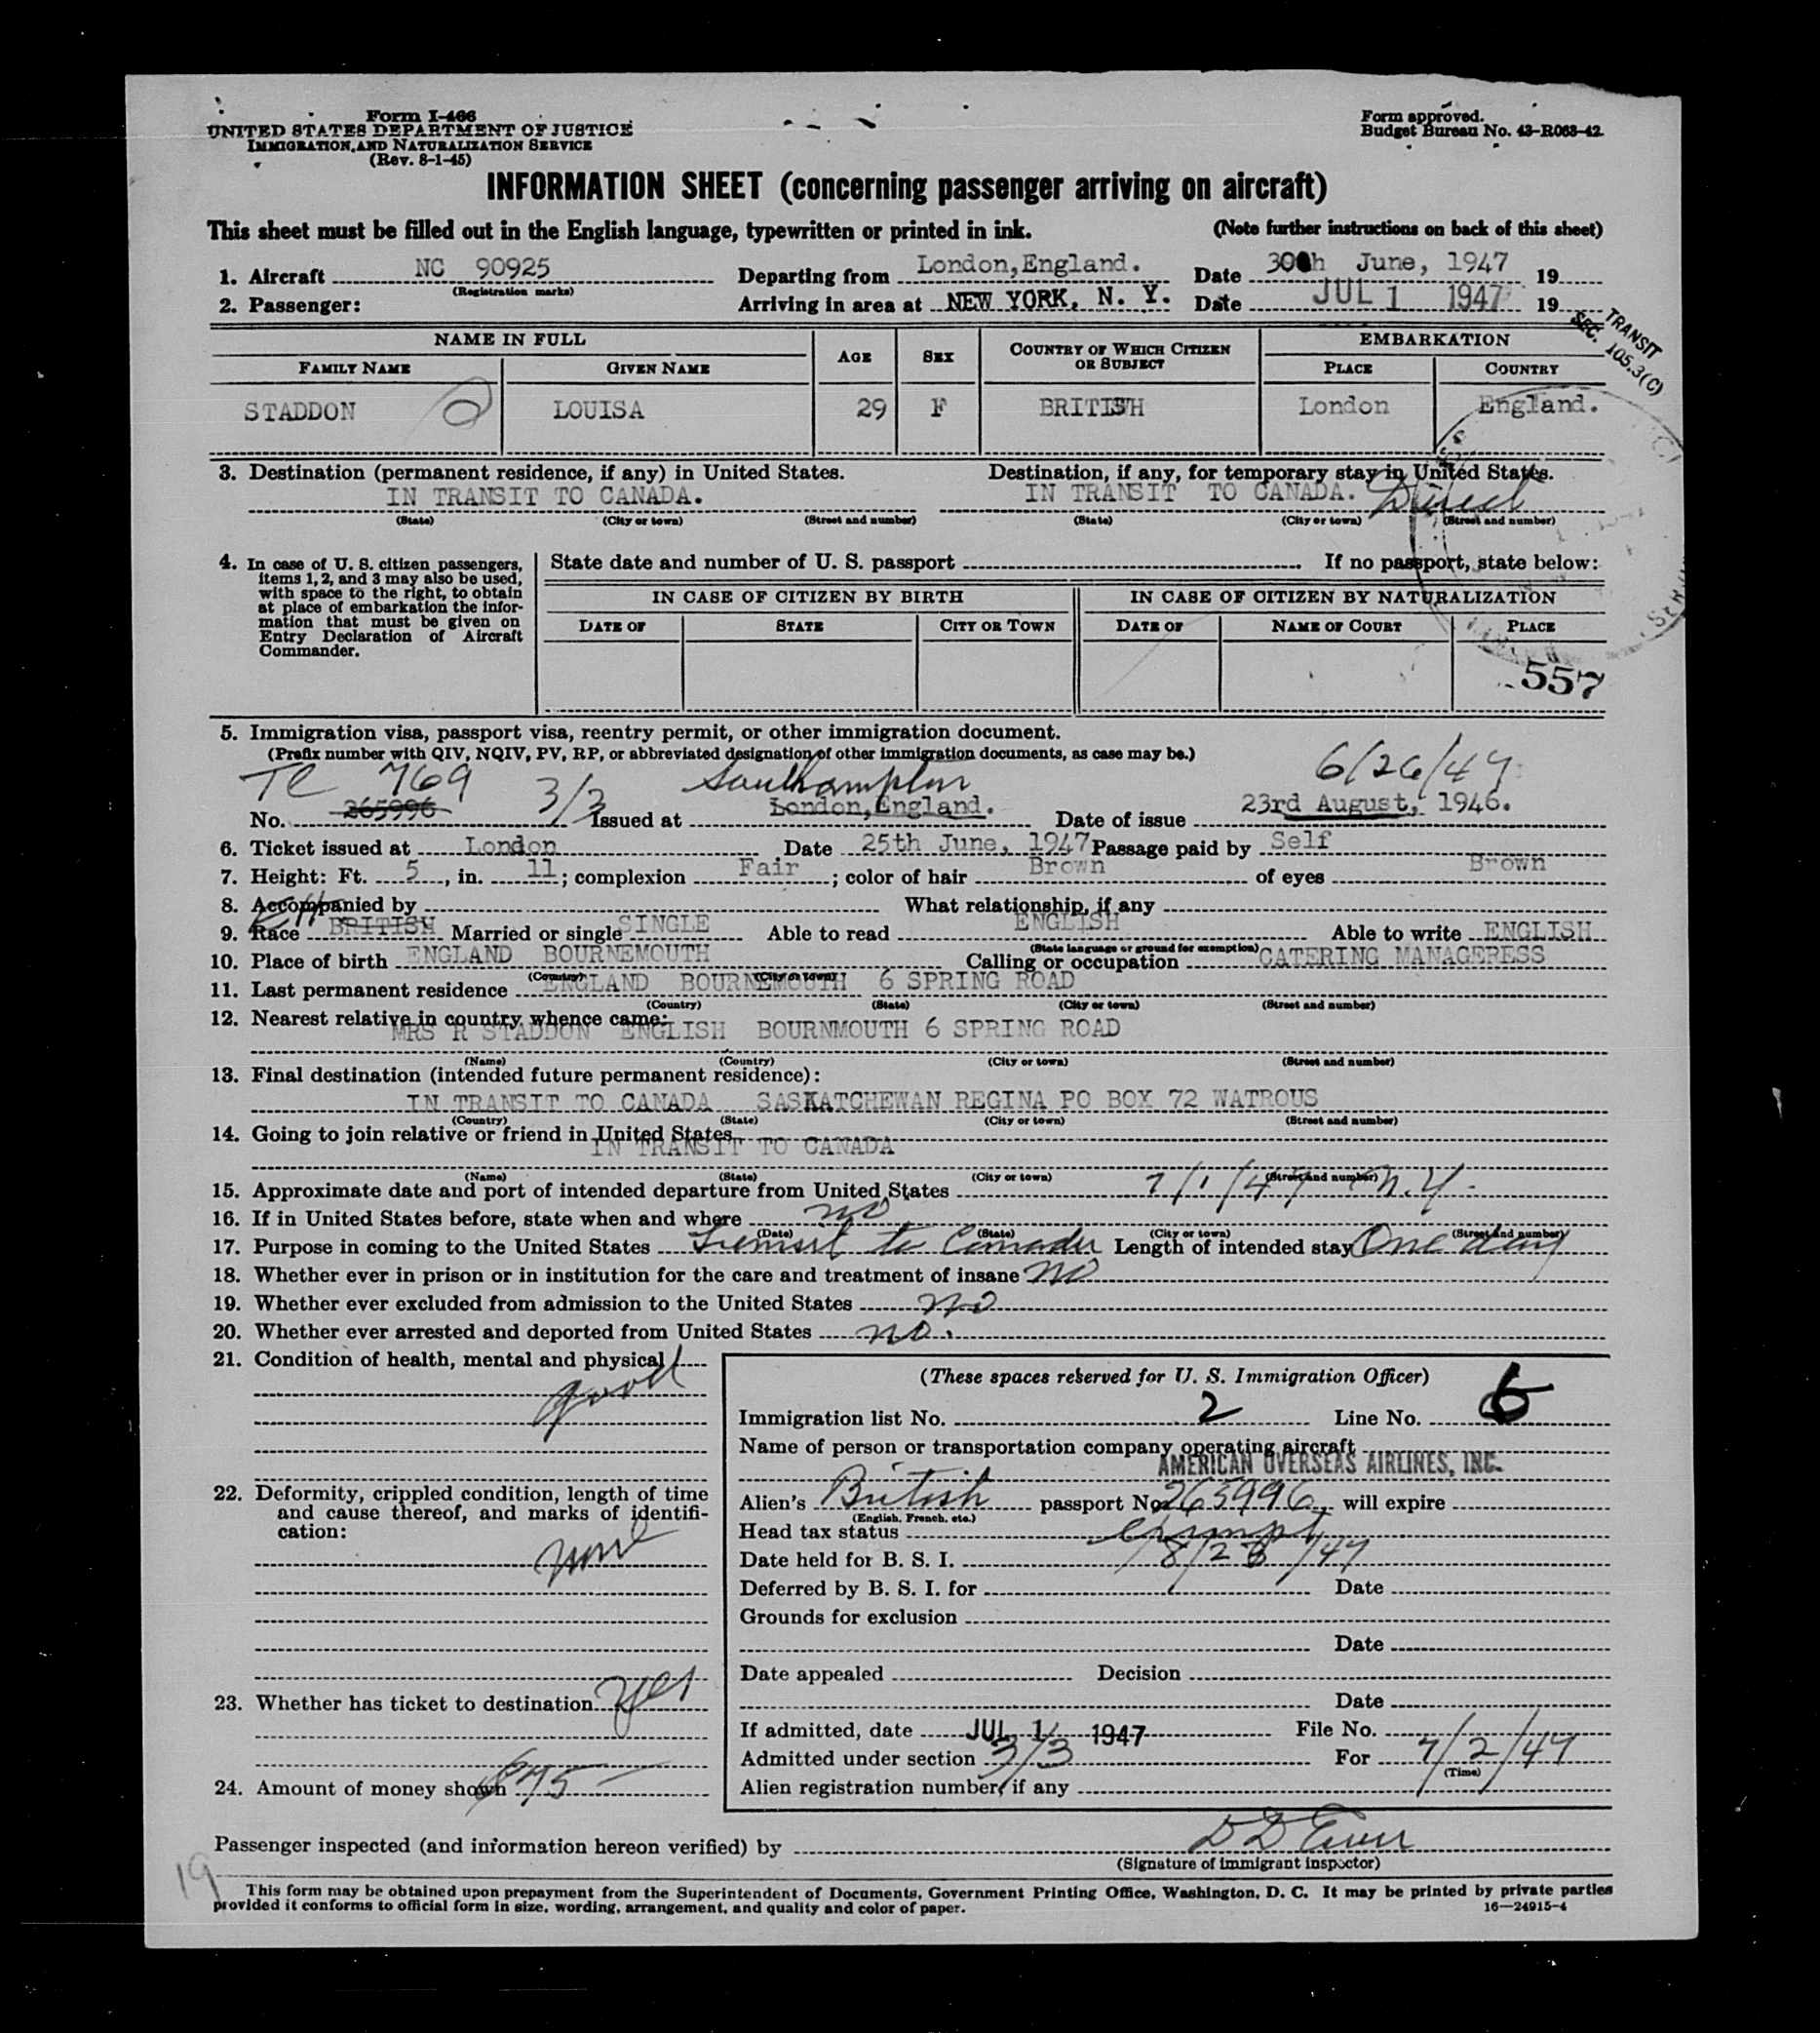 Form I-466
UNITED STATES DEPARTMENT OF JUSTICE
IMMIGRATION AND NATURALIZATION SERVICE
(Rev. 8-1-45)
Form approved.
Budget Bureau No. 43-R063-42.
INFORMATION SHEET (concerning passenger arriving on aircraft)
This sheet must be filled out in the English language, typewritten or printed in ink. (Note further instructions on back of this sheet)
1. Aircraft NC 90925 Departing from London, England. Date 30th June, 1947 19
(Registration marks)
2. Passenger: Arriving in area at NEW YORK, N. Y. Date JUL 1 1947 19
TRANSIT
SEC. 105.3(C)
NAME IN FULL AGE SEX COUNTRY OF WHICH CITIZEN OR SUBJECT EMBARKATION
FAMILY NAME GIVEN NAME PLACE COUNTRY
STADDON LOUISA 29 F BRITISH London England.
3. Destination (permanent residence, if any) in United States. Destination, if any, for temporary stay in United States.
IN TRANSIT TO CANADA. IN TRANSIT TO CANADA. Direct
(State) (City or town) (Street and number) (State) (City or town) (Street and number)
4. In case of U. S. citizen passengers, items 1, 2, and 3 may also be used, with space to the right, to obtain at place of embarkation the information that must be given on Entry Declaration of Aircraft Commander.
State date and number of U. S. passport If no passport, state below:
IN CASE OF CITIZEN BY BIRTH IN CASE OF CITIZEN BY NATURALIZATION
DATE OF STATE CITY OR TOWN DATE OF NAME OF COURT PLACE
557
5. Immigration visa, passport visa, reentry permit, or other immigration document.
(Prefix number with QIV, NQIV, PV, RP, or abbreviated designation of other immigration documents, as case may be.)
TC 769 3/3 Southampton 6/26/47
No. 265996 Issued at London, England. Date of issue 23rd August, 1946.
6. Ticket issued at London Date 25th June, 1947 Passage paid by Self
7. Height: Ft. 5, in. 11; complexion Fair; color of hair Brown of eyes Brown
8. Accompanied by What relationship, if any
9. Race BRITISH Married or single SINGLE Able to read ENGLISH Able to write ENGLISH
(State language or ground for exemption)
10. Place of birth ENGLAND BOURNEMOUTH Calling or occupation CATERING MANAGERESS
(Country) (City or town)
11. Last permanent residence ENGLAND BOURNEMOUTH 6 SPRING ROAD
(Country) (State) (City or town) (Street and number)
12. Nearest relative in country whence came:
MRS R STADDON ENGLISH BOURNMOUTH 6 SPRING ROAD
(Name) (Country) (City or town) (Street and number)
13. Final destination (intended future permanent residence):
IN TRANSIT TO CANADA SASKATCHEWAN REGINA PO BOX 72 WATROUS
(Country) (State) (City or town) (Street and number)
14. Going to join relative or friend in United States
IN TRANSIT TO CANADA
(Name) (State) (City or town) (Street and number)
15. Approximate date and port of intended departure from United States 7/1/47 N.Y.
16. If in United States before, state when and where no
(Date) (State) (City or town) (Street and number)
17. Purpose in coming to the United States Transit to Canada Length of intended stay One day
18. Whether ever in prison or in institution for the care and treatment of insane no
19. Whether ever excluded from admission to the United States no
20. Whether ever arrested and deported from United States no.
21. Condition of health, mental and physical
good
22. Deformity, crippled condition, length of time and cause thereof, and marks of identification:
none
23. Whether has ticket to destination yes
24. Amount of money shown $75 —
(These spaces reserved for U. S. Immigration Officer)
Immigration list No. 2 Line No. 6
Name of person or transportation company operating aircraft
AMERICAN OVERSEAS AIRLINES, INC.
Alien's British passport No. 265996, will expire
(English, French, etc.)
Head tax status exempt
Date held for B. S. I. 8/23/47
Deferred by B. S. I. for Date
Grounds for exclusion
Date
Date appealed Decision
Date
If admitted, date JUL 1 1947 File No.
Admitted under section 3/3 For 7/2/47
(Time)
Alien registration number, if any
Passenger inspected (and information hereon verified) by
(Signature of immigrant inspector)
19
This form may be obtained upon prepayment from the Superintendent of Documents, Government Printing Office, Washington, D. C. It may be printed by private parties
provided it conforms to official form in size, wording, arrangement, and quality and color of paper.
16—24915-4